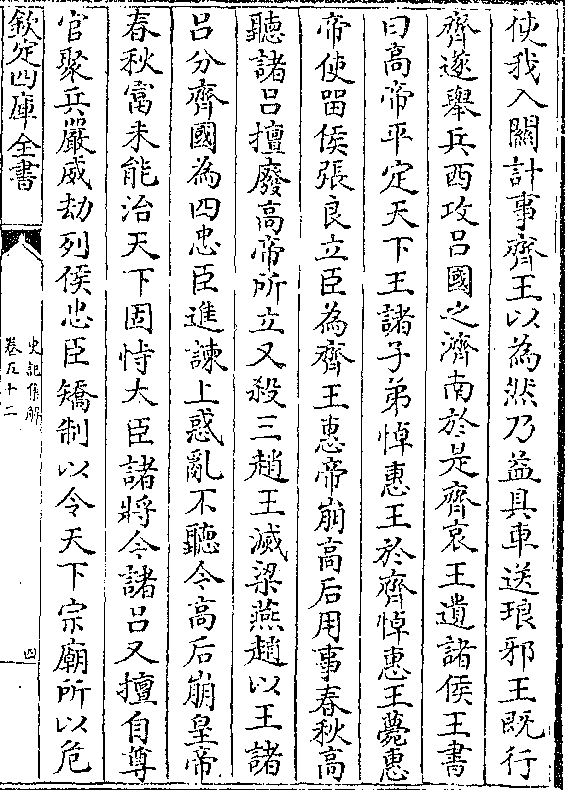 使我入關計事齊王以為然乃益具車送琅邪王既行
齊遂舉兵西攻呂國之濟南於是齊哀王遺諸侯王書
曰高帝平定天下王諸子弟悼惠王於齊悼惠王薨惠
帝使留侯張良立臣為齊王惠帝崩高后用事春秋高
聽諸呂擅廢高帝所立又殺三趙王滅梁燕趙以王諸
呂分齊國為四忠臣進諫上惑亂不聽今高后崩皇帝
春秋富未能治天下固恃大臣諸將今諸呂又擅自尊
官聚兵嚴威劫列侯忠臣矯制以令天下宗廟所以危
欽定四庫全書
史記集解
卷五十二
四